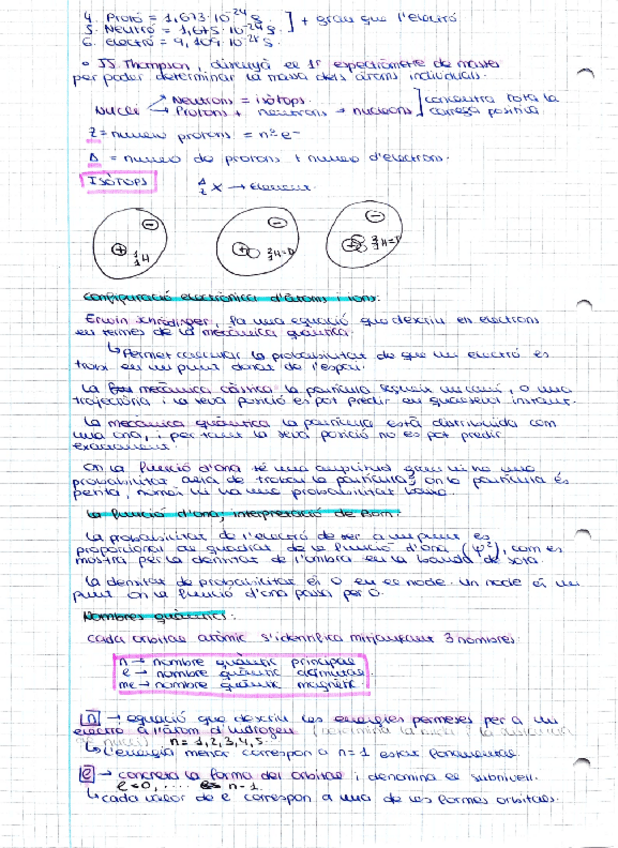 4. Protó = 1,673·10⁻²⁴ g.
5. Neutró = 1,675·10⁻²⁴ g. ] + gran que l'electró
6. electró = 9,109·10⁻²⁸ g.
• JJ. Thompson, dissenyà el 1r espectròmetre de masses
per poder determinar la massa dels àtoms individuals.
Nucli → Neutrons = isòtops.
→ Protons + neutrons → nucleons ] concentra tota la càrrega positiva.
Z = numero protons = nº e⁻
A = numero de protons + numero d'electrons.
ISÒTOPS
A Z X → Element.
⊖ ⊕ 1 1 H
⊖ ⊕ 2 1 H = D
⊖ ⊕ 3 1 H = T
configuració electrònica d'àtoms i ions:
Erwin Schrödinger, fa una equació que descriu en electrons
en termes de la mecànica quàntica.
↳ Permet calcular la probabilitat de que un electró es
trobi en un punt donat de l'espai.
La mecànica clàssica la partícula segueix un camí, o una
trajectòria i la seva posició es pot predir en qualsevol instant.
La mecànica quàntica la partícula està distribuida com
una ona, i per tant la seva posició no es pot predir
exactament.
On la funció d'ona té una amplitud gran hi ha una
probabilitat de trobar la partícula, on la partícula és
petita, només hi ha una probabilitat baixa.
La funció d'ona, interpretació de Born:
La probabilitat de l'electró de ser a un punt es
proporcional al quadrat de la funció d'ona (ψ²), com es
mostra per la densitat de l'ombra en la banda de sota.
La densitat de probabilitat és 0 en el node. Un node és un
punt on la funció d'ona passi per 0.
Nombres quàntics:
cada orbital atòmic s'identifica mitjançant 3 nombres:
n → nombre quàntic principal
l → nombre quàntic azimutal.
ml → nombre quàntic magnètic.
n → equació que descriu les energies permeses per a un
electró a l'àtom d'hidrogen
n = 1,2,3,4,5.
↳ L'energia menor correspon a n=1 estat fonamental.
l → concreta la forma del orbital i denomina el subnivell.
l = 0, ..... n-1.
↳ cada valor de l correspon a una de les formes orbitals.